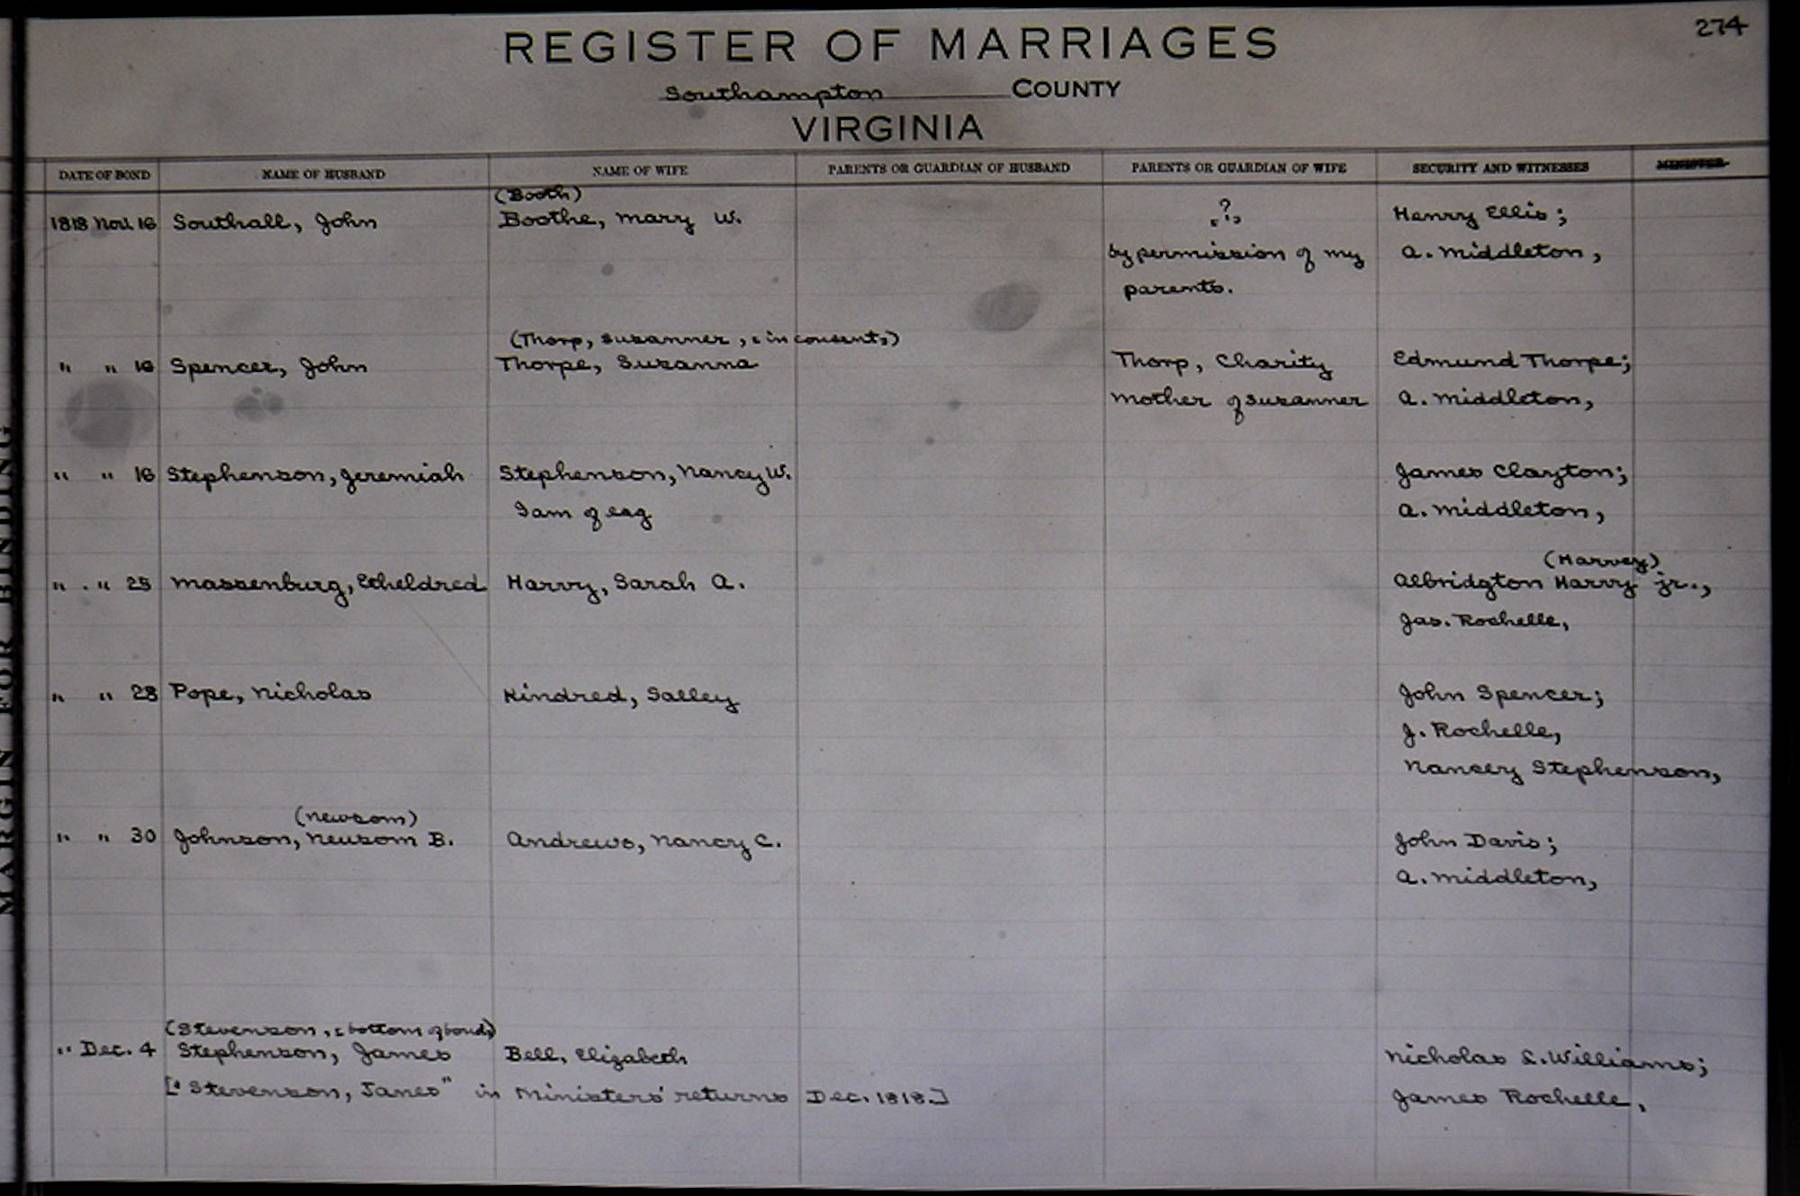 274
REGISTER OF MARRIAGES
Southampton COUNTY
VIRGINIA
DATE OF BOND NAME OF HUSBAND NAME OF WIFE PARENTS OR GUARDIAN OF HUSBAND PARENTS OR GUARDIAN OF WIFE SECURITY AND WITNESSES MINISTER
(Booth)
1818 Nov. 16 Southall, John Boothe, Mary W. ? Henry Ellis;
by permission of my A. Middleton,
parents.
(Thorp, Suzanner, in consent,)
" " 16 Spencer, John Thorpe, Suzanna Thorp, Charity Edmund Thorpe;
Mother of Suzanner A. Middleton,
" " 16 Stephenson, Jeremiah Stephenson, Nancy W. James Clayton;
I am of eag A. Middleton,
(Harvey)
" " 25 Massenburg, Etheldred Harvy, Sarah A. Albridgton Harvy jr.,
Jas. Rochelle,
" " 28 Pope, Nicholas Kindred, Salley John Spencer;
J. Rochelle,
Nancey Stephenson,
(Newsom)
" " 30 Johnson, Neusom B. Andrews, Nancy C. John Davis;
A. Middleton,
(Stevenson, bottom of bond,)
" Dec. 4 Stephenson, James Bell, Elizabeth Nicholas S. Williams;
["Stevenson, Janes" in Ministers' returns Dec. 1818.] James Rochelle,
MARGIN FOR BINDING